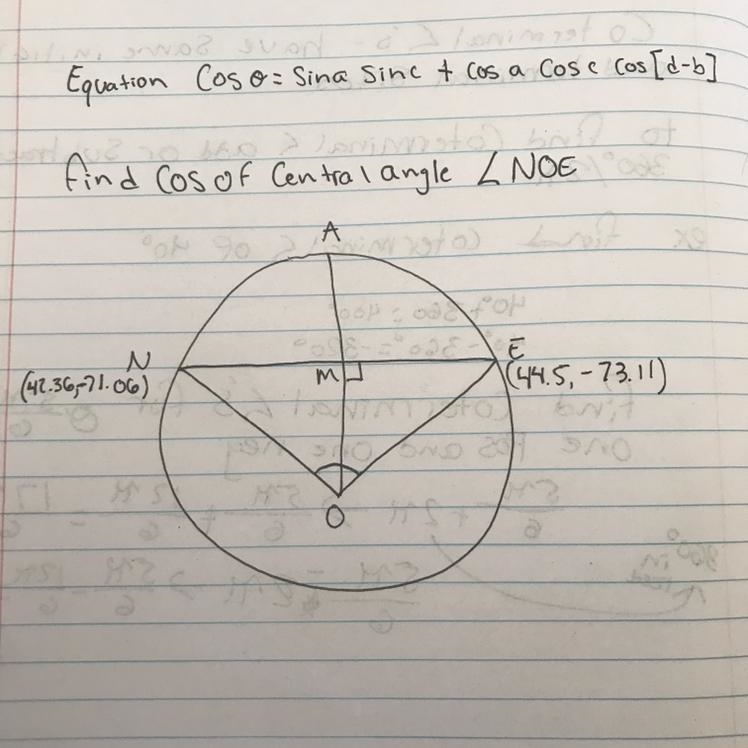 Equation Cosθ= Sina Sinc + Cos a Cos c cos[d-b]
find Cos of Central angle ∠NOE
A
N
E
(42.36,-71.06)
M
(44.5, -73.11)
O